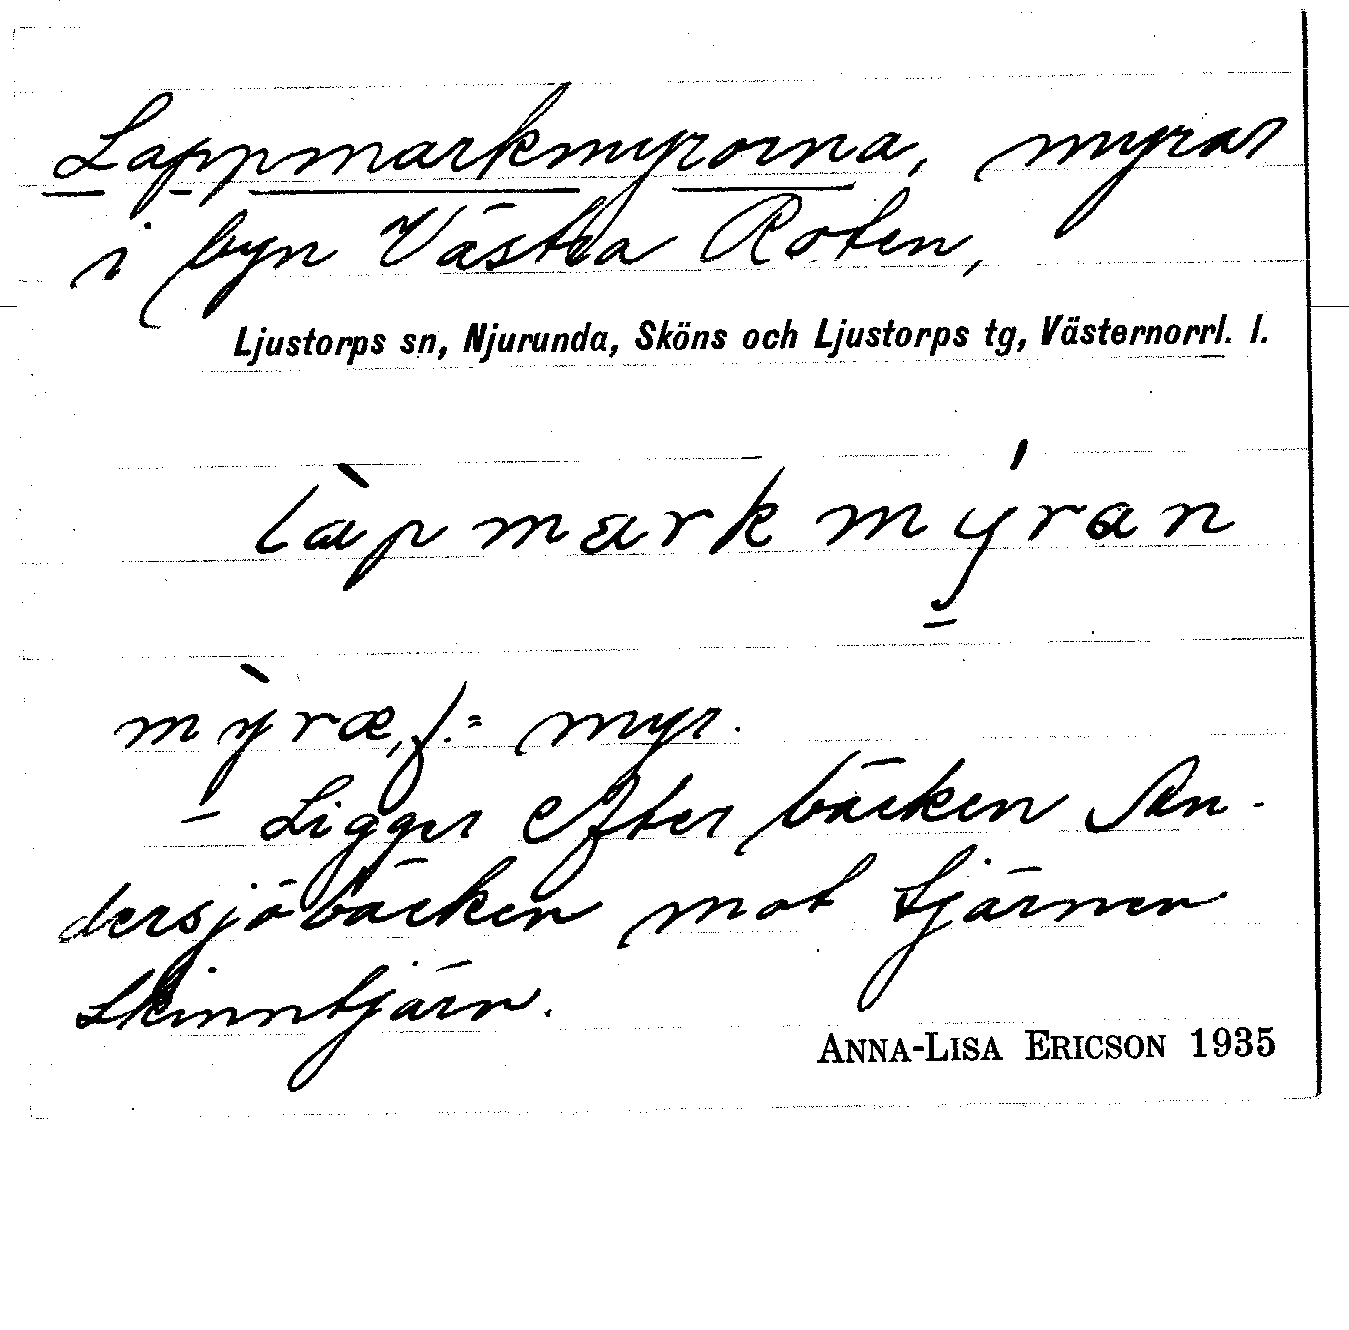 Lappmarkmyrorna, myrar
i byn Västra Roten,
Ljustorps sn, Njurunda, Sköns och Ljustorps tg, Västernorrl. l.
làpmarkmýran
mỳræ, f. = myr.
– Ligger efter bäcken An-
dersjöbäcken mot tjärnen
Skinntjärn.
ANNA-LISA ERICSON 1935